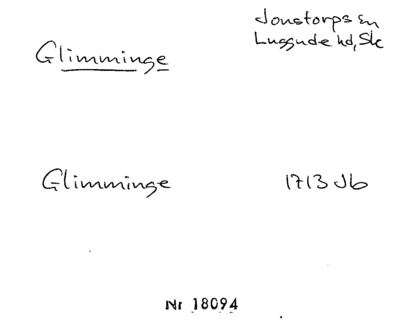 Glimminge
Jonstorps sn
Luggude hd, Sk
Glimminge
1713 Jb
Nr 18094